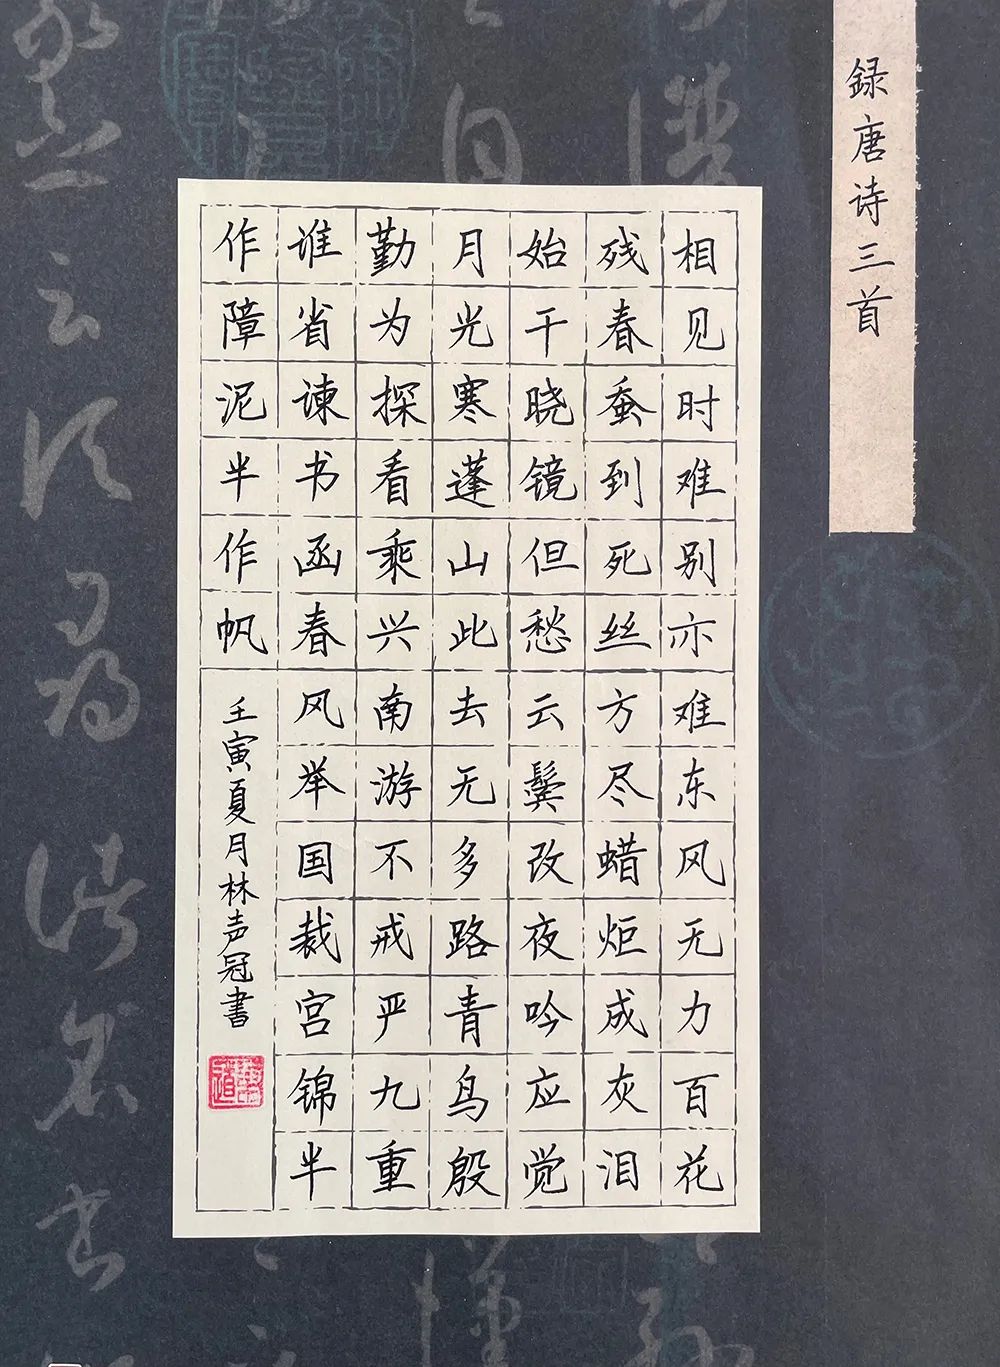 録唐诗三首
相见时难别亦难东风无力百花
残春蚕到死丝方尽蜡炬成灰泪
始干晓镜但愁云鬓改夜吟应觉
月光寒蓬山此去无多路青鸟殷
勤为探看乘兴南游不戒严九重
谁省谏书函春风举国裁宫锦半
作障泥半作帆
壬寅夏月林声冠書